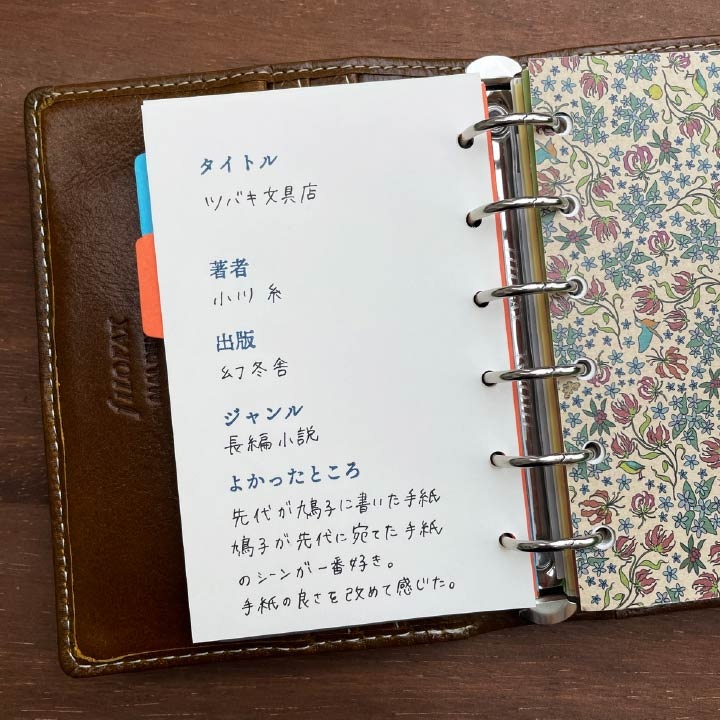 タイトル
ツバキ文具店
著者
小川 糸
出版
幻冬舎
ジャンル
長編小説
よかったところ
先代が鳩子に書いた手紙
鳩子が先代に宛てた手紙
のシーンが一番好き。
手紙の良さを改めて感じた。
filofax